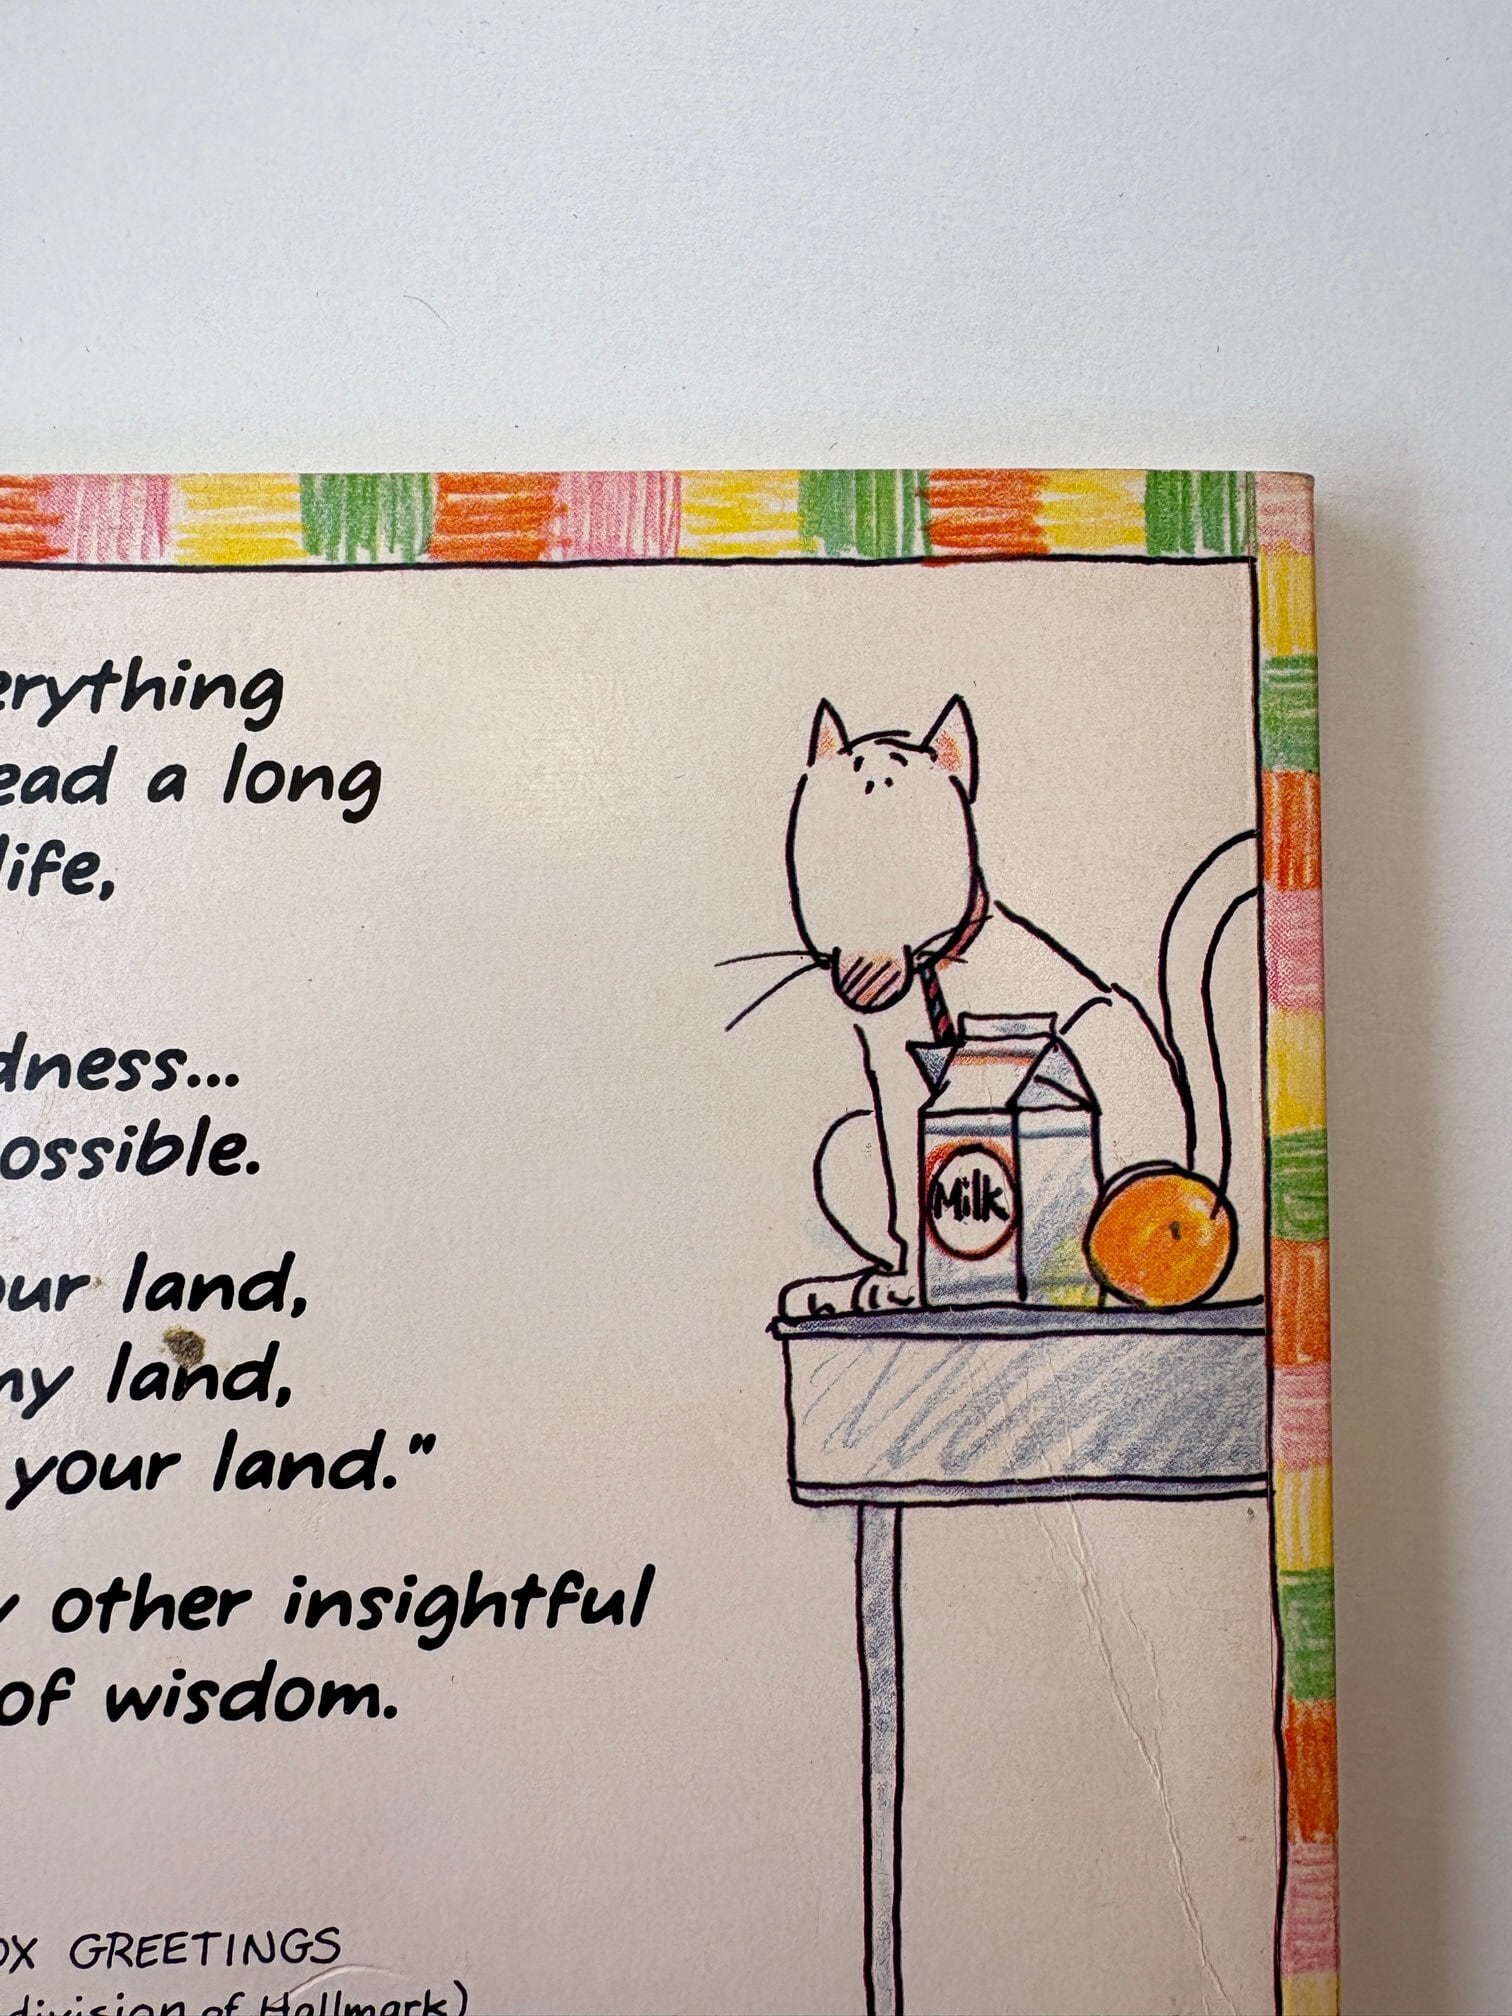 erything
ead a long
life,
dness...
ossible.
our land,
my land,
your land."
y other insightful
of wisdom.
Milk
OX GREETINGS
division of Hallmark)